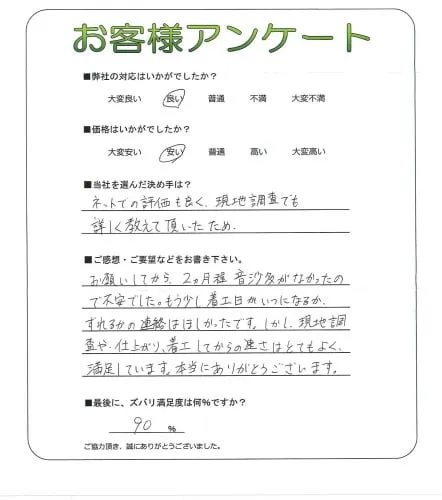 お客様アンケート
■弊社の対応はいかがでしたか?
大変良い 良い 普通 不満 大変不満
■価格はいかがでしたか?
大変安い 安い 普通 高い 大変高い
■当社を選んだ決め手は?
ネットでの評価も良く、現地調査でも
詳しく教えて頂いたため.
■ご感想・ご要望などをお書き下さい。
お願いしてから、2ヵ月程 音沙多がなかったの
で不安でした。もう少し着工日がいつになるか、
ずれるかの連絡はほしかったです。しかし、現地調
査や、仕上がり、着工してからの速さはとてもよく、
満足しています。本当にありがとうございます。
■最後に、ズバリ満足度は何%ですか?
90 %
ご協力頂き、誠にありがとうございました。